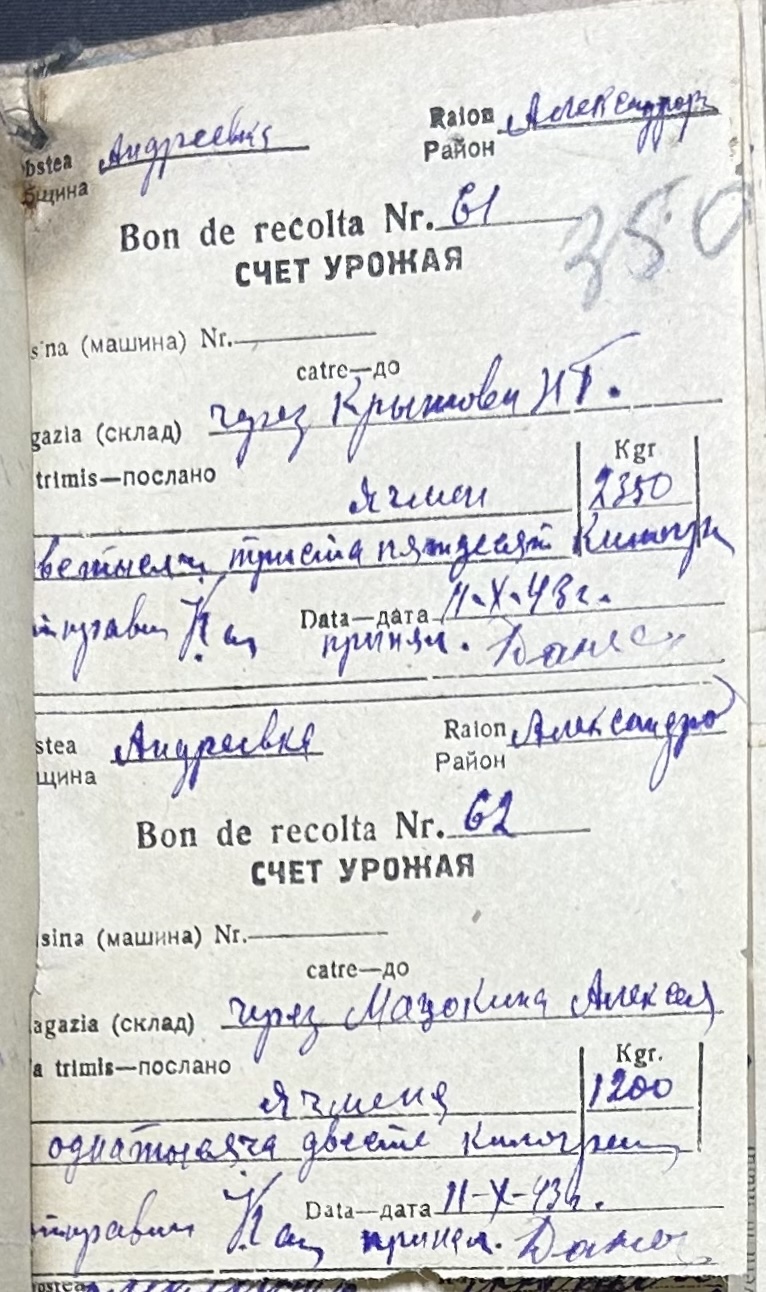 bstea Андреевка Raion Александров
бщина Район
Bon de recolta Nr. 61
СЧЕТ УРОЖАЯ
350
sina (машина) Nr.
catre—до
gazia (склад) через
trimis—послано Kgr
Ячмен 2350
ве тысячи триста пятдесят Килогр
тправил Кац Data—дата 11-X-43г.
принял.
stea Андреевка Raion Алексадро
щина Район
Bon de recolta Nr. 62
СЧЕТ УРОЖАЯ
sina (машина) Nr.
catre—до
agazia (склад) через Мазокина Алексея
a trimis—послано Kgr.
Ячменя 1200
одна тысяча двести килограм
тправил Кац Data—дата 11-X-43г.
принял.